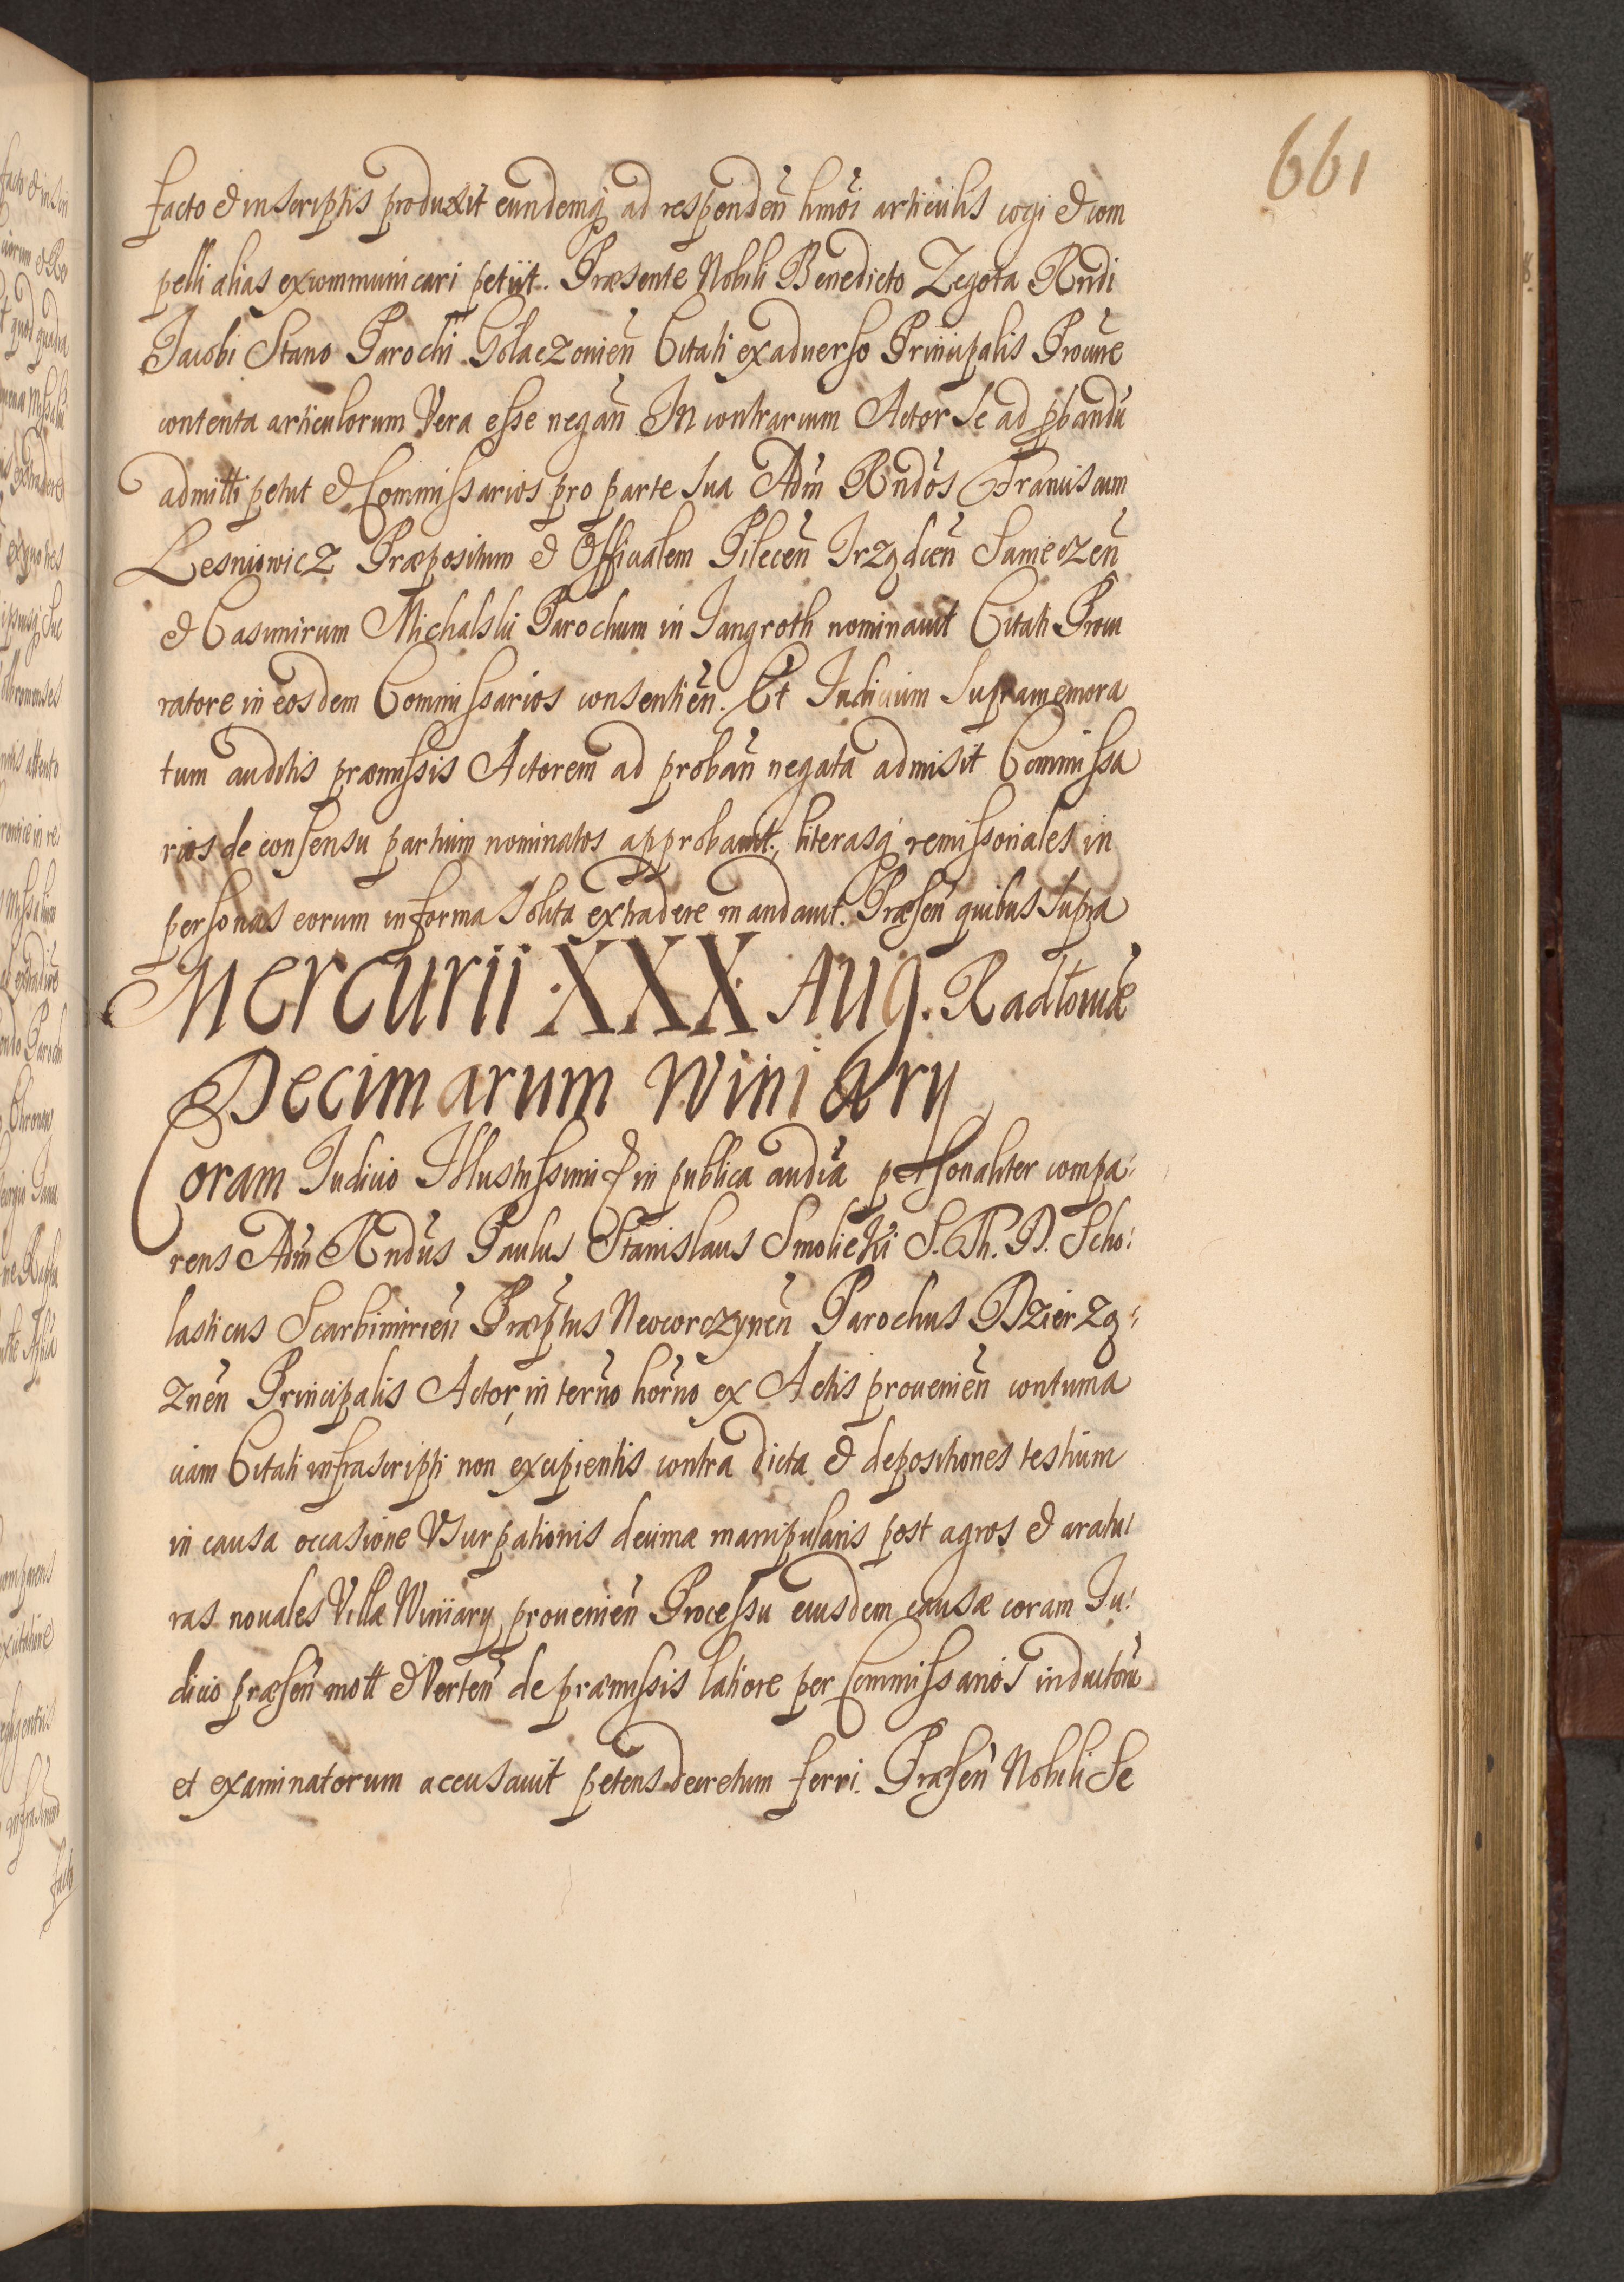 661
facto & in scriptis produxit eundemq̃ ad respondeñ hmõi articulis cogi & com
pelli alias excommunicari petiit. Præsente Nobili Benedicto Zegota Rndi
Jacobi Stano Parochi Gołaczovieñ Citati ex aduerso Principalis Procure
contenta articulorum Vera esse negañ In contrarium Actor se ad pbandũ
admitti petiit & Commissarios pro parte sua Adm̃ Rndõs Franciscum
Lesniowicz Præpositum & Officialem Pileceñ Irządceñ Samieczeñ
& Casimirum Michalski Parochum in Jangroth nominauit Citati Procu
ratore in eosdem Commissarios consentieñ. Et Iudicium Supramemora
tum auditis præmissis Actorem ad probañ negata admisit Commissa
rios de consensu partium nominatos approbauit, literasq̃ remissoriales in
personas eorum in forma solita extradere mandauit. Præseñ quibus supra
Mercurii XXX Aug. Radłoviæ
Decimarum Winiary
Coram Iudicio Illustrissimi & in publica audĩa personaliter compa:
rens Adm̃ Rndus Paulus Stanislaus Smolicki S. Th. D. Scho:
lasticus Scarbimirieñ Præptus Neocorczyneñ Parochus Dzierzą:
zneñ Principalis Actor, in terño horño ex Actis prouenieñ contuma
ciam Citati infrascripti non excipientis contra dicta & depositiones testium
in causa occasione Vsurpationis decimæ manipularis post agros & aratu:
ras nouales Villæ Winiary prouenieñ Processu eiusdem causæ coram Iu:
dicio præseñ mott & Verteñ de præmissis latiore per Commissarios inductorũ
et examinatorum accusauit petens decretum ferri. Præseñ Nobili Se